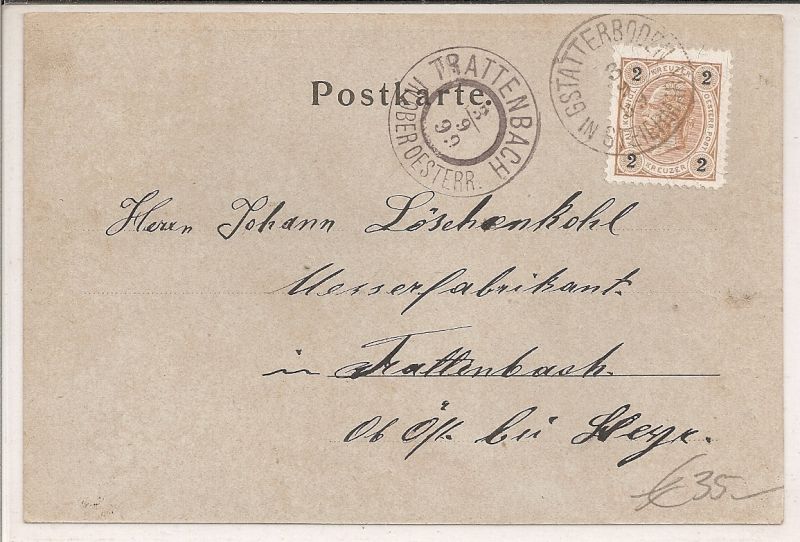 Postkarte.
TRATTENBACH IN OBEROESTERR.
3/9 99
GSTATTERBODEN IN S
2 KREUZER 2
2 KREUZER 2
Herrn Johann Löschenkohl
Messerfabrikant.
in Trattenbach.
Ob Öst. bei Steyr.
€ 35-